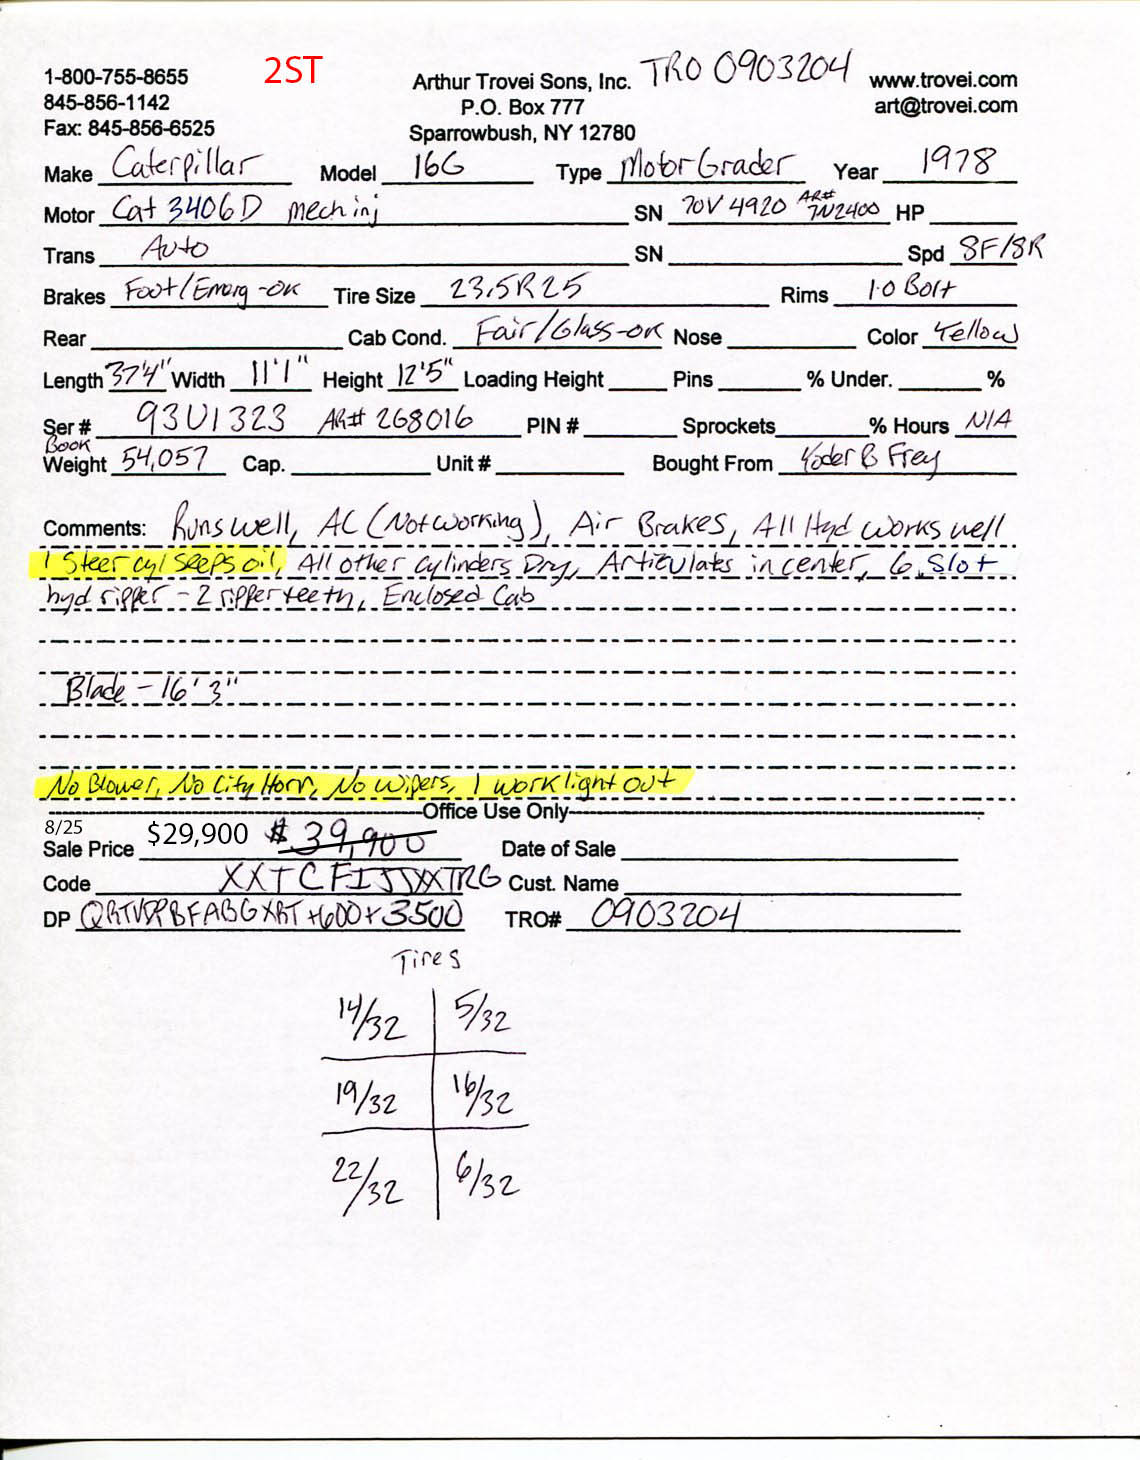 1-800-755-8655 2ST Arthur Trovei Sons, Inc. TRO 0903204 www.trovei.com
845-856-1142 P.O. Box 777 art@trovei.com
Fax: 845-856-6525 Sparrowbush, NY 12780
Make Caterpillar Model 16G Type Motor Grader Year 1978
Motor Cat 3406D mech inj SN 70V4920 AR# 7N2400 HP
Trans Auto SN Spd 8F/8R
Brakes Foot/Emerg-OK Tire Size 23.5R25 Rims 10 Bolt
Rear Cab Cond. Fair/Glass-OK Nose Color Yellow
Length 37'4" Width 11'1" Height 12'5" Loading Height Pins % Under. %
Ser # 93U1323 AR# 268016 PIN # Sprockets % Hours N/A
Book
Weight 54,057 Cap. Unit # Bought From Yoder B Frey
Comments: Runs well, AC (Not working), Air Brakes, All Hyd works well
1 Steer cyl seeps oil, All other cylinders Dry, Articulates in center, 6 Slot
hyd ripper - 2 ripper teeth, Enclosed Cab
Blade - 16'3"
No Blower, No City Horn, No Wipers, 1 work light out
Office Use Only
8/25
Sale Price $29,900 $39,900 Date of Sale
Code Cust. Name
DP +600+3500 TRO# 0903204
Tires
14/32 5/32
19/32 16/32
22/32 6/32